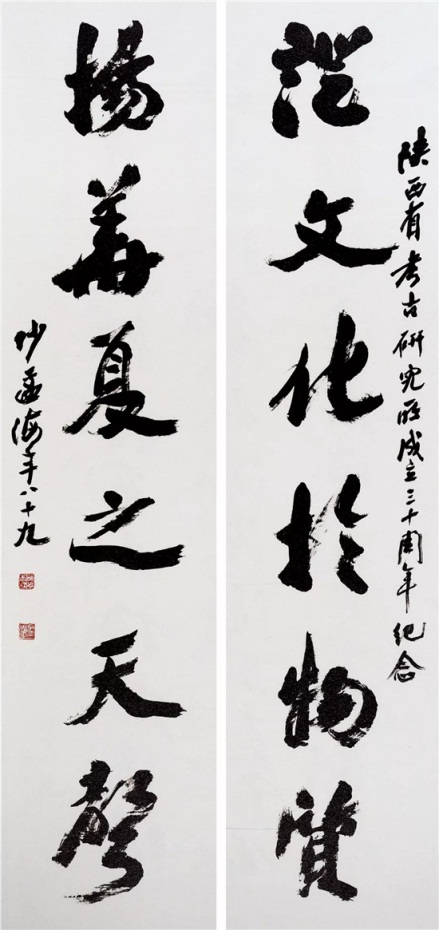 陝西省考古研究所成立三十周年紀念
證文化於物質
揚華夏之天聲
沙孟海年八十九